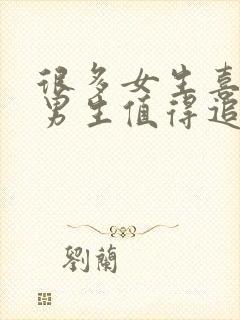 很多女生喜
男生值得追
劉蘭